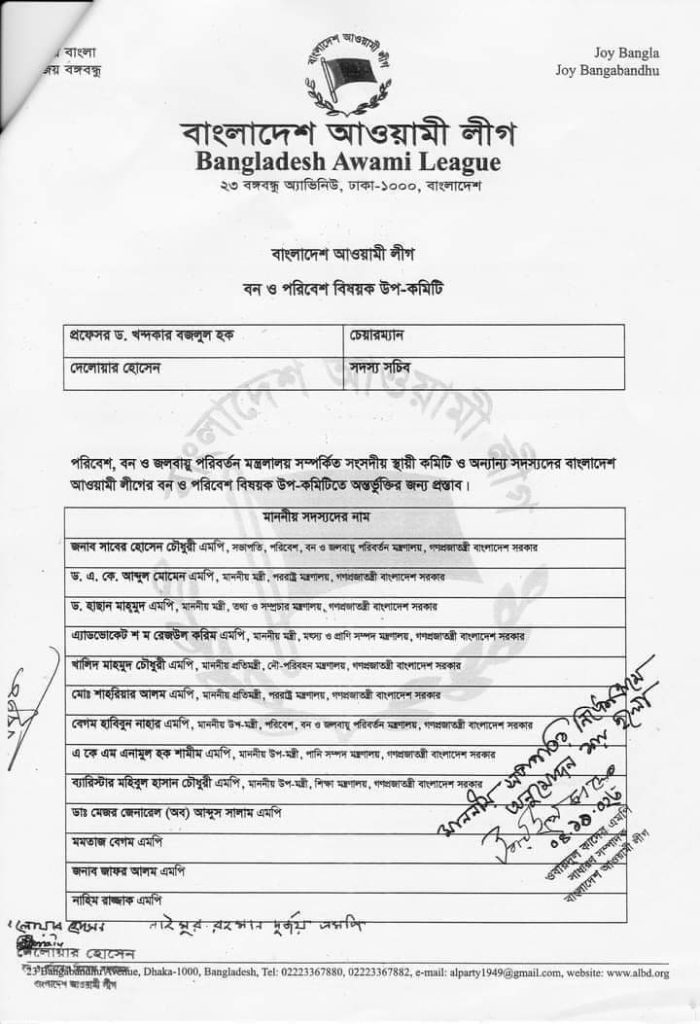 বাংলা
জয় বঙ্গবন্ধু
Joy Bangla
Joy Bangabandhu
বাংলাদেশ আওয়ামী লীগ
বাংলাদেশ আওয়ামী লীগ
Bangladesh Awami League
২৩ বঙ্গবন্ধু অ্যাভিনিউ, ঢাকা-১০০০, বাংলাদেশ
বাংলাদেশ আওয়ামী লীগ
বন ও পরিবেশ বিষয়ক উপ-কমিটি
প্রফেসর ড. খন্দকার বজলুল হক চেয়ারম্যান
দেলোয়ার হোসেন সদস্য সচিব
বাংলাদেশ আওয়ামী লীগ
পরিবেশ, বন ও জলবায়ু পরিবর্তন মন্ত্রলালয় সম্পর্কিত সংসদীয় স্থায়ী কমিটি ও অন্যান্য সদস্যদের বাংলাদেশ
আওয়ামী লীগের বন ও পরিবেশ বিষয়ক উপ-কমিটিতে অন্তর্ভুক্তির জন্য প্রস্তাব।
মাননীয় সদস্যদের নাম
জনাব সাবের হোসেন চৌধুরী এমপি, সভাপতি, পরিবেশ, বন ও জলবায়ু পরিবর্তন মন্ত্রণালয়, গণপ্রজাতন্ত্রী বাংলাদেশ সরকার
ড. এ. কে. আব্দুল মোমেন এমপি, মাননীয় মন্ত্রী, পররাষ্ট্র মন্ত্রণালয়, গণপ্রজাতন্ত্রী বাংলাদেশ সরকার
ড. হাছান মাহ্‌মুদ এমপি, মাননীয় মন্ত্রী, তথ্য ও সম্প্রচার মন্ত্রণালয়, গণপ্রজাতন্ত্রী বাংলাদেশ সরকার
এ্যাডভোকেট শ ম রেজউল করিম এমপি, মাননীয় মন্ত্রী, মৎস্য ও প্রাণি সম্পদ মন্ত্রণালয়, গণপ্রজাতন্ত্রী বাংলাদেশ সরকার
খালিদ মাহমুদ চৌধুরী এমপি, মাননীয় প্রতিমন্ত্রী, নৌ-পরিবহন মন্ত্রণালয়, গণপ্রজাতন্ত্রী বাংলাদেশ সরকার
মোঃ শাহরিয়ার আলম এমপি, মাননীয় প্রতিমন্ত্রী, পররাষ্ট্র মন্ত্রণালয়, গণপ্রজাতন্ত্রী বাংলাদেশ সরকার
বেগম হাবিবুন নাহার এমপি, মাননীয় উপ-মন্ত্রী, পরিবেশ, বন ও জলবায়ু পরিবর্তন মন্ত্রণালয়, গণপ্রজাতন্ত্রী বাংলাদেশ সরকার
এ কে এম এনামুল হক শামীম এমপি, মাননীয় উপ-মন্ত্রী, পানি সম্পদ মন্ত্রণালয়, গণপ্রজাতন্ত্রী বাংলাদেশ সরকার
ব্যারিস্টার মহিবুল হাসান চৌধুরী এমপি, মাননীয় উপ-মন্ত্রী, শিক্ষা মন্ত্রণালয়, গণপ্রজাতন্ত্রী বাংলাদেশ সরকার
ডাঃ মেজর জেনারেল (অব) আব্দুস সালাম এমপি
মমতাজ বেগম এমপি
জনাব জাফর আলম এমপি
নাহিম রাজ্জাক এমপি
মাননীয় সভাপতির নির্দেশক্রমে
অনুমোদন করা হলো
ওবায়দুল কাদের
ওবায়দুল কাদের এমপি
সাধারণ সম্পাদক
বাংলাদেশ আওয়ামী লীগ
নাইমুর রহমান দুর্জয় এমপি
দেলোয়ার হোসেন
দেলোয়ার হোসেন
23 Bangabandhu Avenue, Dhaka-1000, Bangladesh, Tel: 02223367880, 02223367882, e-mail: alparty1949@gmail.com, website: www.albd.org
বাংলাদেশ আওয়ামী লীগ